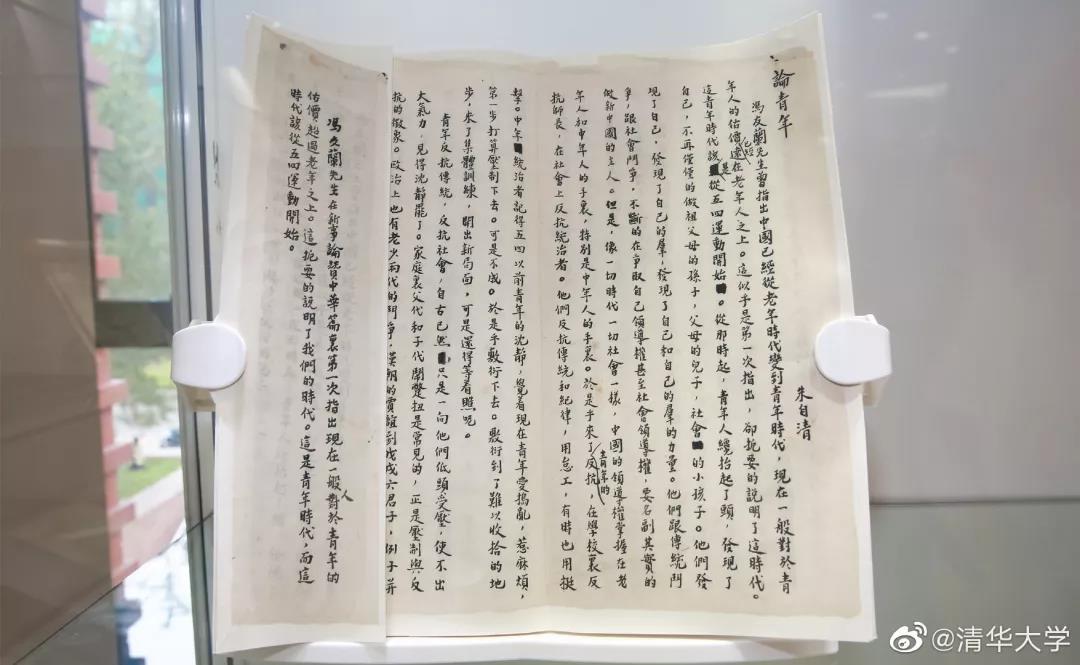 論青年
朱自清
馮友蘭先生曾指出中國已經從老年時代變到青年時代,現在一般對於青
年人的估價已經遠在老年人之上。這似乎是第一次指出,卻扼要的說明了這時代。
這青年時代該是從五四運動開始。從那時起,青年人纔抬起了頭,發現了
自己,不再僅僅的做祖父母的孫子,父母的兒子,社會的小孩子。他們發
現了自己,發現了自己的羣,發現了自己和自己的羣的力量。他們跟傳統鬥
爭,跟社會鬥爭,不斷的在爭取自己領導權甚至社會領導權,要名副其實的
做新中國的主人。但是,像一切時代一切社會一樣,中國的領導權掌握在老
年人和中年人的手裏,特別是中年人的手裏。於是乎來了青年的反抗,在學校裏反
抗師長,在社會上反抗統治者。他們反抗傳統和紀律,用怠工,有時也用挺
擊。中年統治者記得五四以前青年的沈靜,覺着現在青年愛搗亂,惹麻煩,
第一步打算壓制下去。可是不成。於是乎敷衍下去。敷衍到了難以收拾的地
步,來了集體訓練,開出新局面,可是還得等着瞧呢。
青年反抗傳統,反抗社會,自古已然,只是一向他們低頭受壓,使不出
大氣力,見得沈靜罷了。家庭裏父代和子代鬧彆扭是常見的,正是壓制與反
抗的徵象。政治上也有老少兩代的鬥爭,漢朝的賈誼到戊戌六君子,例子并
馮友蘭先生在新事論讚中華篇裏第一次指出現在一般人對於青年的
估價超過老年之上。這扼要的說明了我們的時代。這是青年時代,而這
時代該從五四運動開始。
@清华大学